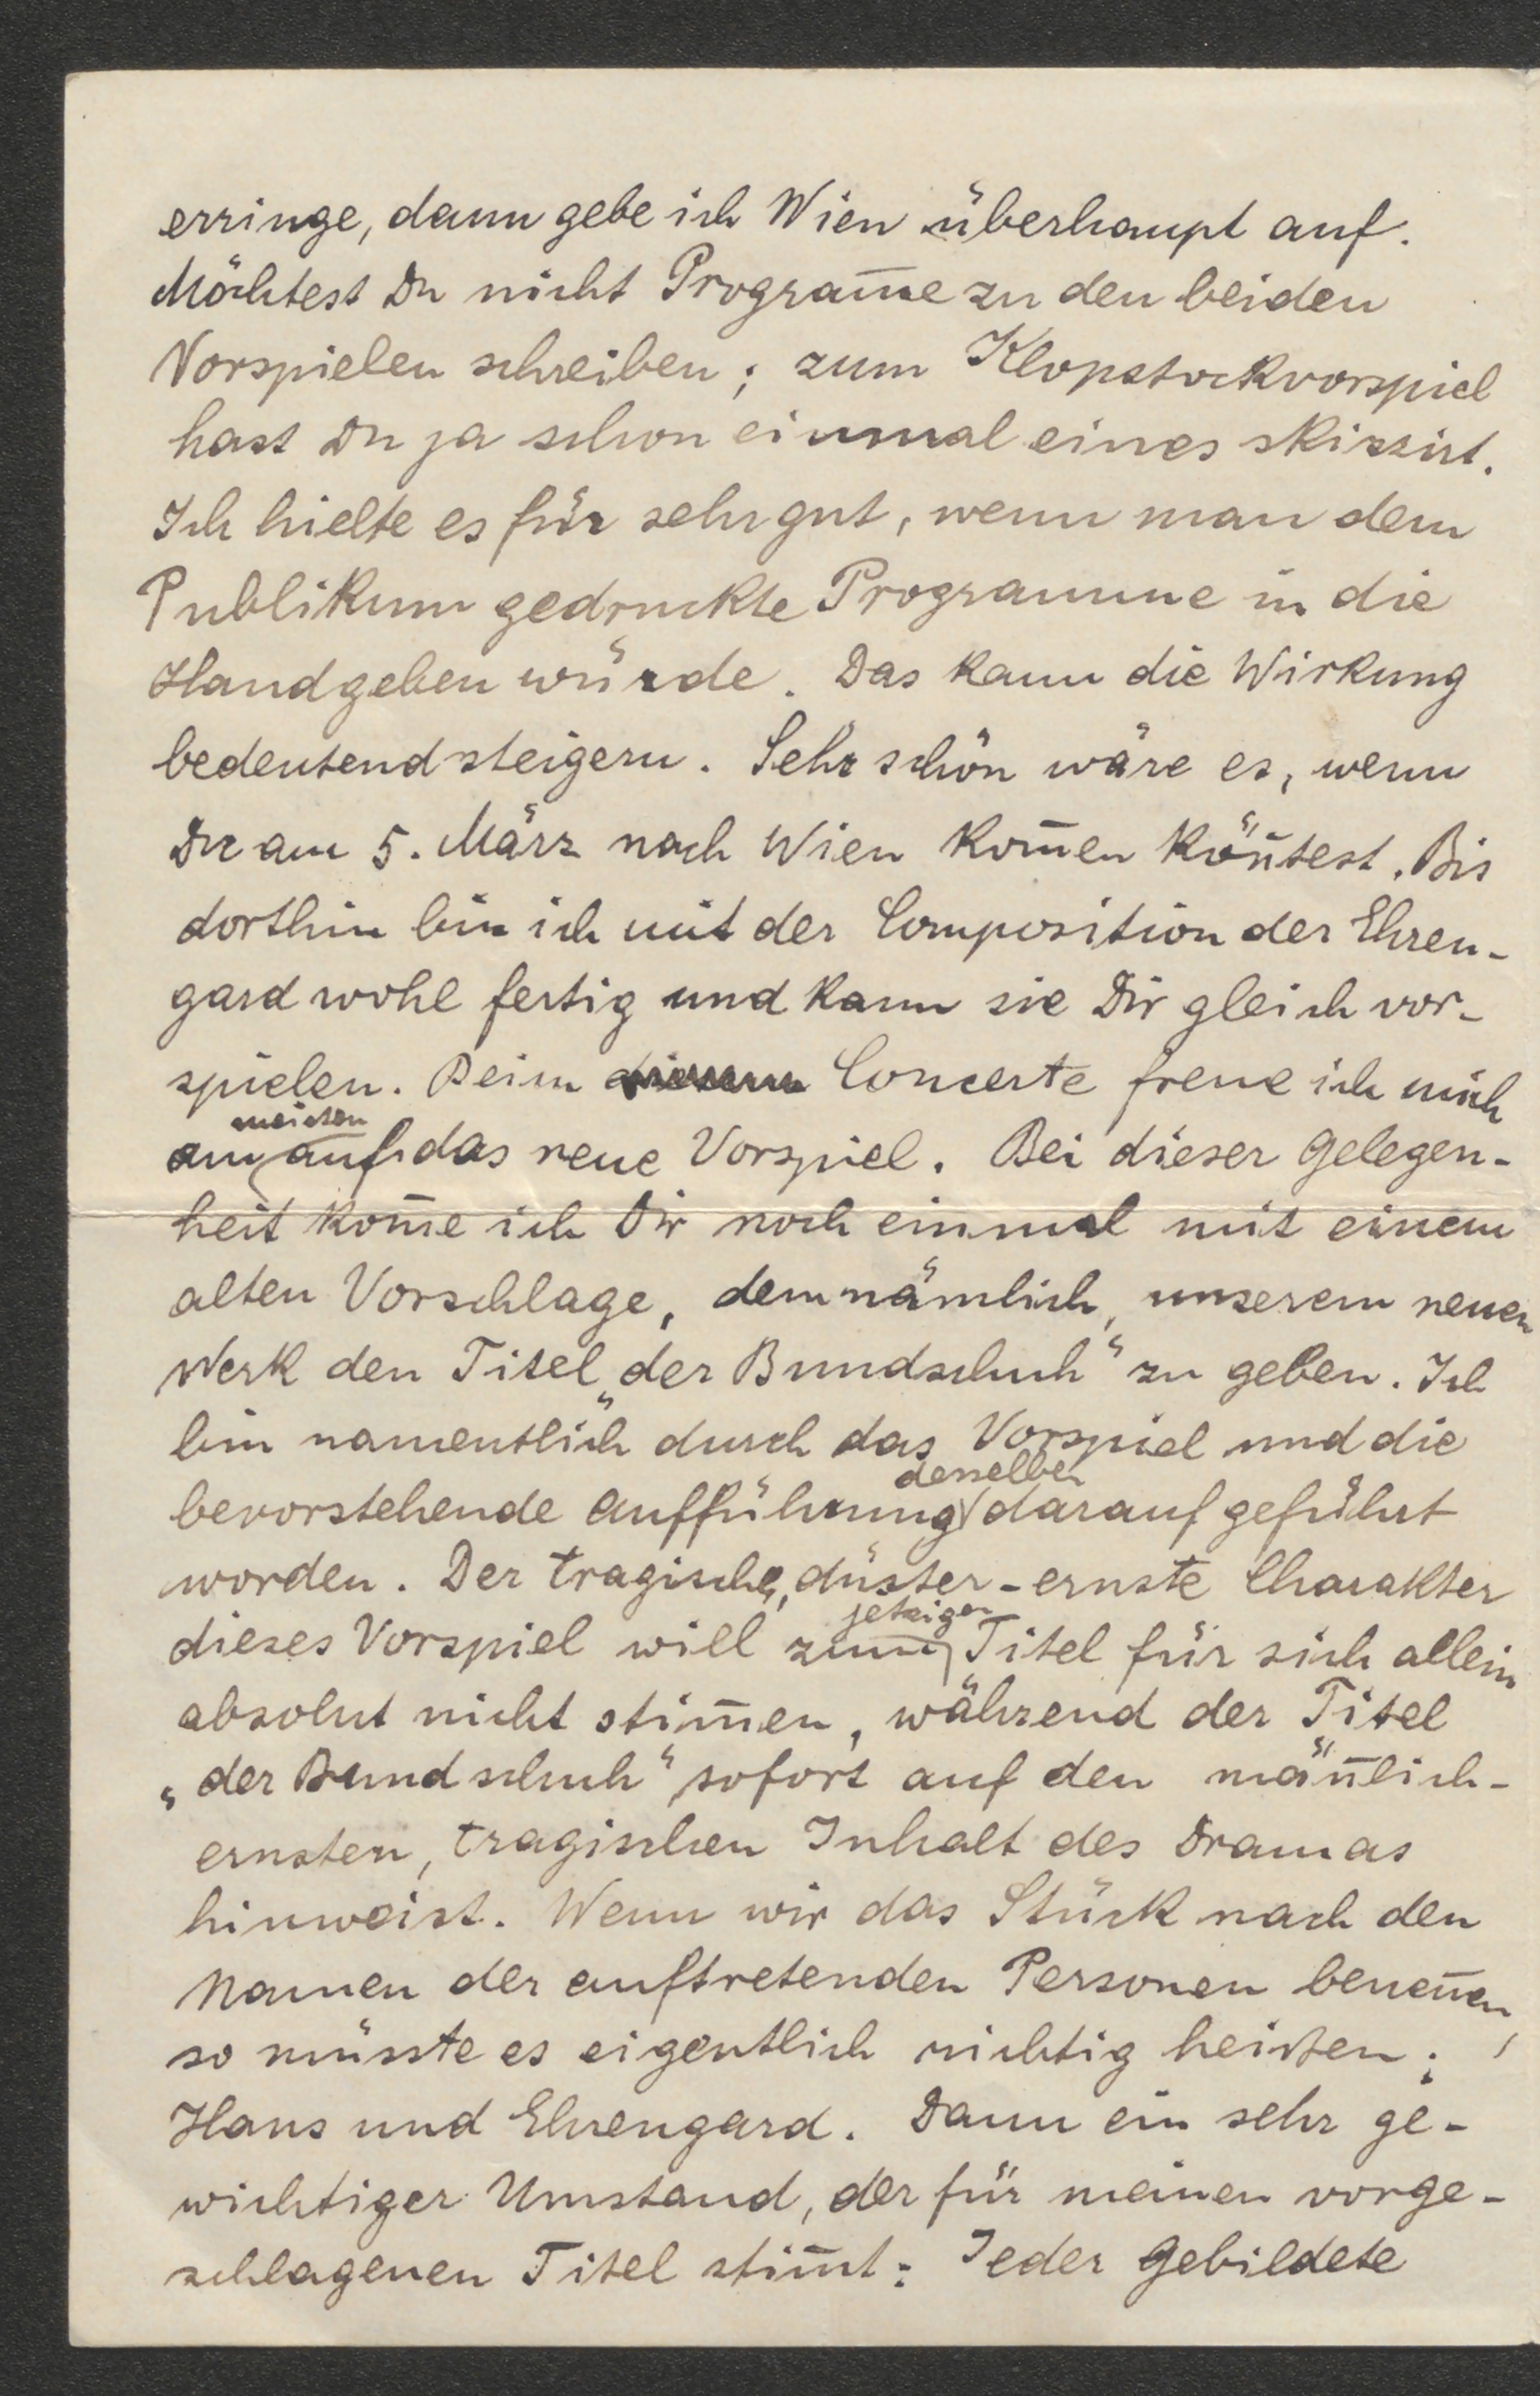 erringe, dann gebe ich Wien überhaupt auf.
Möchtest Du nicht Programm̅e zu den beiden
Vorspielen schreiben; zum Klopstockvorspiel
hast Du ja schon einmal eines skizzirt.
Ich hielte es für sehr gut, wenn man dem
Publikum gedruckte Programme in die
Hand geben würde. Das kann die Wirkung
bedeutend steigern. Sehr schön wäre es, wenn
Du am 5. März nach Wien kom̅en kön̅test. Bis
dorthin bin ich mit der Composition der Ehren-
gard wohl fertig und kann sie Dir gleich vor-
spielen. Beim Concerte freue ich mich
am meisten auf das neue Vorspiel. Bei dieser Gelegen-
heit kom̅e ich Dir noch einmal mit einem
alten Vorschlage, dem nämlich, unserem neuen
Werk den Titel „der Bundschuh“ zu geben. Ich
bin namentlich durch das Vorspiel und die
bevorstehende Aufführung desselben darauf geführt
worden. Der tragische, düster-ernste Charakter
dieses Vorspiel will zum jetzigen Titel für sich allein
absolut nicht stim̅en, während der Titel
„der Bundschuh“ sofort auf den män̅lich-
ernsten, tragischen Inhalt des Dramas
hinweist. Wenn wir das Stück nach den
Namen der auftretenden Personen benen̅en,
so müsste es eigentlich richtig heißen:
Hans und Ehrengard. Dann ein sehr ge-
wichtiger Umstand, der für meinen vorge-
schlagenen Titel stim̅t: Jeder Gebildete